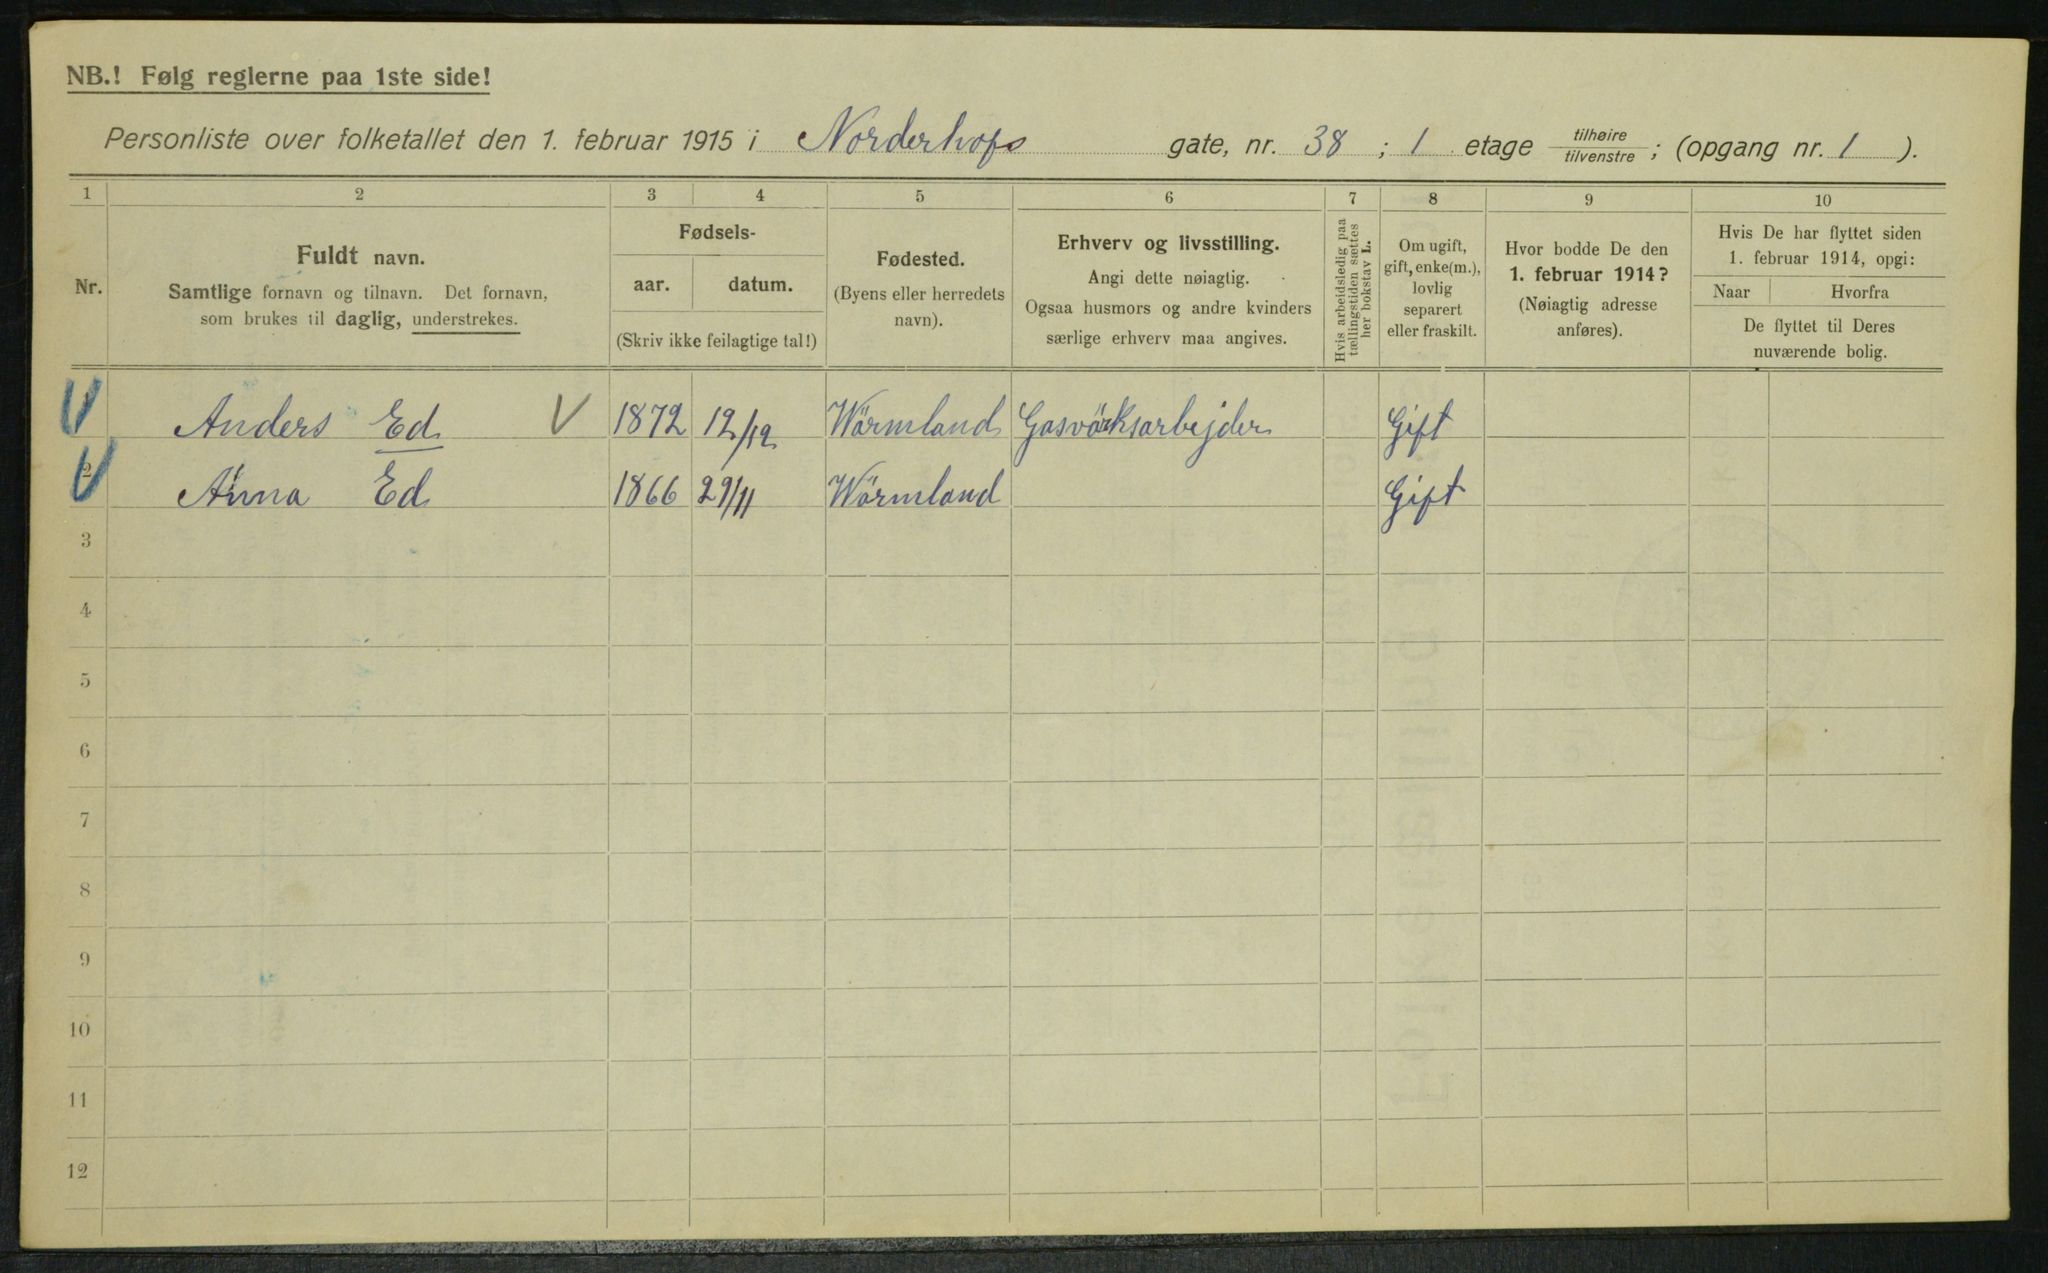 NB.! Følg reglerne paa 1ste side!
Personliste over folketallet den 1. februar 1915 i Norderhofs gate, nr. 38 ; 1 etage tilhøire / tilvenstre ; (opgang nr. 1 ).
1 2 3 4 5 6 7 8 9 10
Nr.
Fuldt navn.
Samtlige fornavn og tilnavn. Det fornavn,
som brukes til daglig, understrekes.
Fødsels-
aar. datum.
(Skriv ikke feilagtige tal!)
Fødested.
(Byens eller herredets
navn).
Erhverv og livsstilling.
Angi dette nøiagtig.
Ogsaa husmors og andre kvinders
særlige erhverv maa angives.
Hvis arbeidsledig paa
tællingstiden sættes
her bokstav L.
Om ugift,
gift, enke(m.),
lovlig
separert
eller fraskilt.
Hvor bodde De den
1. februar 1914?
(Nøiagtig adresse
anføres).
Hvis De har flyttet siden
1. februar 1914, opgi:
Naar Hvorfra
De flyttet til Deres
nuværende bolig.
Anders Ed V 1872 12/12 Wärmland Gasvärksarbejder Gift
2 Anna Ed 1866 29/11 Wärmland Gift
3
4
5
6
7
8
9
10
11
12